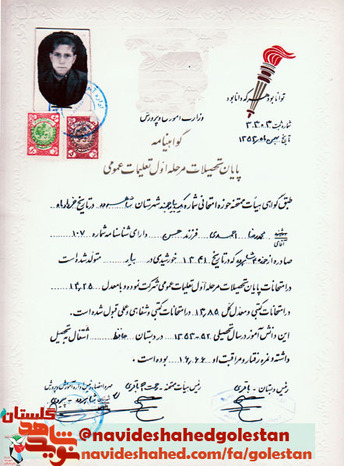 توانا بود هر که دانا بود
وزارت آموزش و پرورش
شماره ثبت ۳۰۳۰۳
گواهینامه
پایان تحصیلات مرحله اول تعلیمات عمومی
طبق گواهی هیأت ممتحنه حوزه امتحانی شماره یک شهرستان در تاریخ خرداد ماه
آقای محمدرضا احمدی فرزند حسن دارای شناسنامه شماره ۱۰۷
صادره از حوزه که در تاریخ ۱۳۴۱ خورشیدی در متولد شده است
در امتحانات پایان تحصیلات مرحله اول تعلیمات عمومی شرکت نموده و با معدل ۱۴,۲۵
در امتحانات کتبی و معدل کل ۱۳,۸۵ در امتحانات کتبی و شفاهی و عملی قبول شده است.
این دانش آموز در سال تحصیلی ۵۲-۱۳۵۳ در دبستان حافظ اشتغال به تحصیل
داشته و نمره رفتار و مراقبت او ۱۶,۶۶ بوده است.
رئیس دبستان - باقری
رئیس هیأت ممتحنه
نوید شاهد گلستان
@navideshahedgolestan
navideshahed.com/fa/golestan